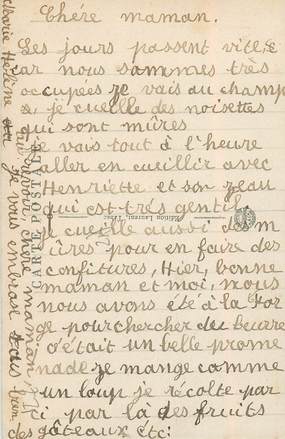 Chére maman.
Les jours passent vite,
car nous sommes très
occupées je vais au champ
s, je cueille des noisettes
qui sont mûres
je vais tout à l'heure
aller en cueillir avec
Henriette et son
qui est très gentil
je cueille aussi des m
ûres pour en faire des
confitures, Hier, bonne
maman et moi, nous
nous avons été à la For
ge pour chercher du beurre
c'était un belle prome
nade je mange comme
un loup je récolte par
ci par là des fruits
des gâteaux etc:
chère maman,
je vous embrase tous bien
Marie Hélène
CARTE POSTALE
Edition Laurent